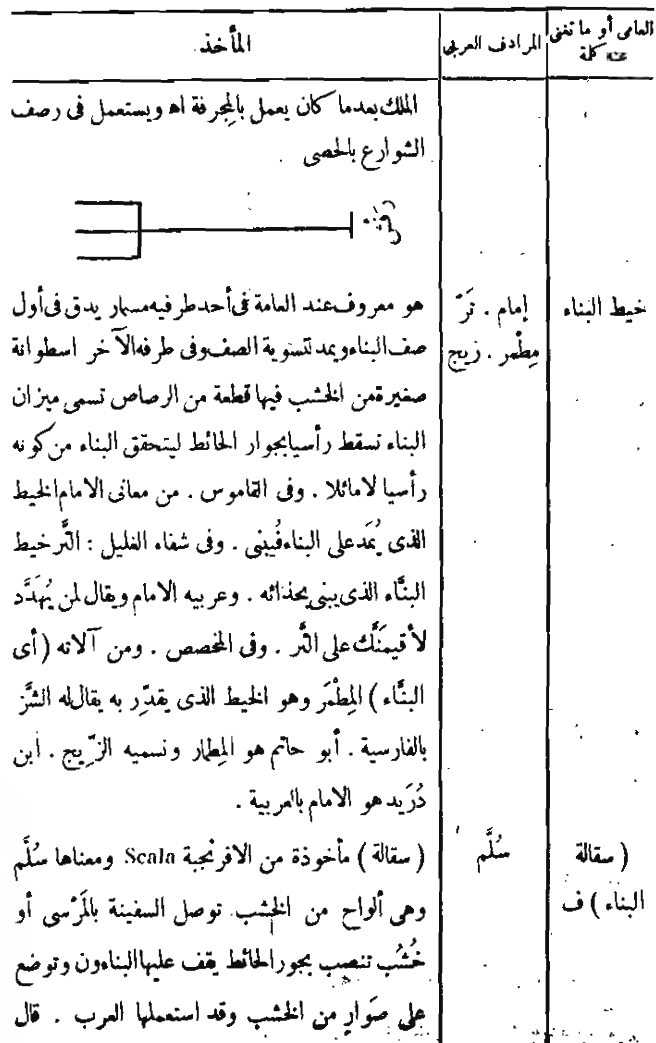 العامى أو ما تغنى عنه كلمة | المرادف العربى | المأخذ
الملك بعد ما كان يعمل بالمِجرفة اه ويستعمل فى رصف
الشوارع بالحصى
رفش
خيط البناء | إمام . تَرّ | هو معروف عند العامة فى أحد طرفيه مسمار يدق فى أول
مِطْمَر . زيج | صف البناء ويمد لتسوية الصف وفى طرفه الآخر اسطوانة
صغيرة من الخشب فيها قطعة من الرصاص تسمى ميزان
البناء تسقط رأسيا بجوار الحائط ليتحقق البناء من كونه
رأسيا لا مائلا . وفى القاموس . من معانى الامام الخيط
الذى يُمَد على البناء فُيبنى . وفى شفاء الغليل : التَّر خيط
البنَّاء الذى يبنى بحذائه . وعربيه الامام ويقال لمن يُهَدَّد
لأقيمَنَّك على التَّر . وفى المخصص . ومن آلاته ( أى
البنَّاء ) المِطْمَر وهو الخيط الذى يقدِّر به يقال له الشَّز
بالفارسية . أبو حاتم هو المِطمار ونسميه الزِّيج . ابن
دُرَيد هو الامام بالعربية .
( سقالة | سُلَّم | ( سقالة ) مأخوذة من الافرنجية Scala ومعناها سُلَّم
البناء ) ف | وهى ألواح من الخشب توصل السفينة بالمَرْسى أو
خُشُب تنصب بجور الحائط يقف عليها البناءون وتوضع
على صَوارٍ من الخشب وقد استعملها العرب . قال